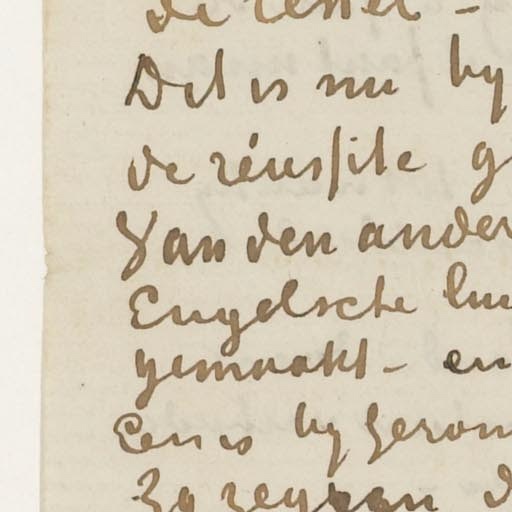 de ressel -
Dit is nu by
de réussite g
Van den ander
Engelsche lui
gemaakt - en
Een is by Gerom
Zy zeggen d